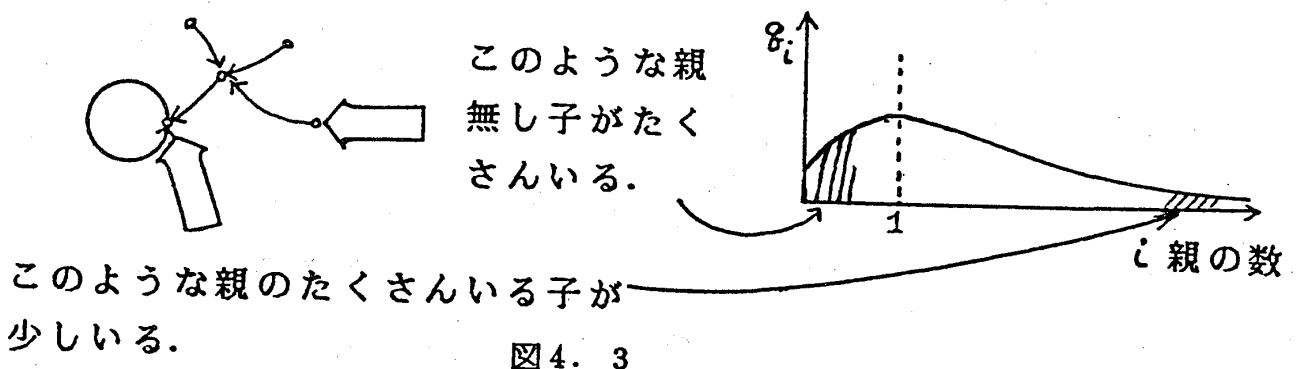 このような親
無し子がたく
さんいる.
qi
1
i 親の数
このような親のたくさんいる子が
少しいる.
図4. 3